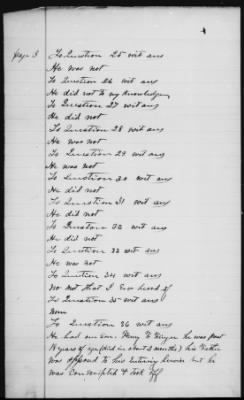 Page 3 To Question 25 wit ans
He was not
To Question 26 wit ans
He did not to my knowledge
To Question 27 wit ans
He did not
To Question 28 wit ans
He was not
To Question 29 wit ans
He was not
To Question 30 wit ans
He did not
To Question 31 wit ans
He did not
To Question 32 wit ans
He did not
To Question 33 wit ans
He was not
To Question 34 wit ans
No not that I Ever heard of
To Question 35 wit ans
None
To Question 36 wit ans
He had one son Henry he was past
18 years of age (died in about 2 months) his Father
was opposed to his entering service but he
was Conscripted & took off